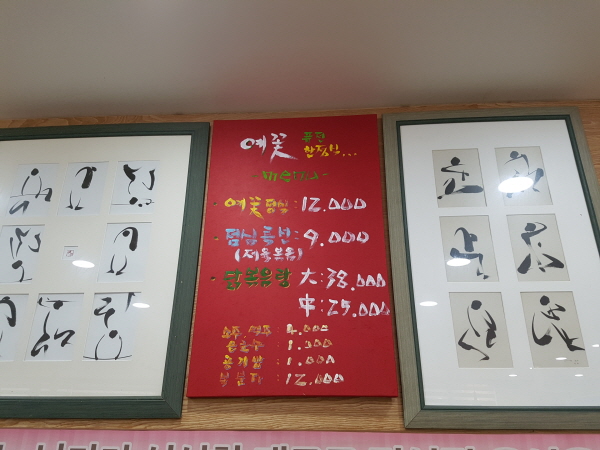 예꽃
한정식...
-menu-
예꽃정식: 12.000
점심특선: 9.000
(제육볶음)
닭볶음탕 大: 38.000
中: 25.000
소주·맥주 : 4.000
음료수 : 1.000
공기밥 : 1.000
복분자 : 12.000